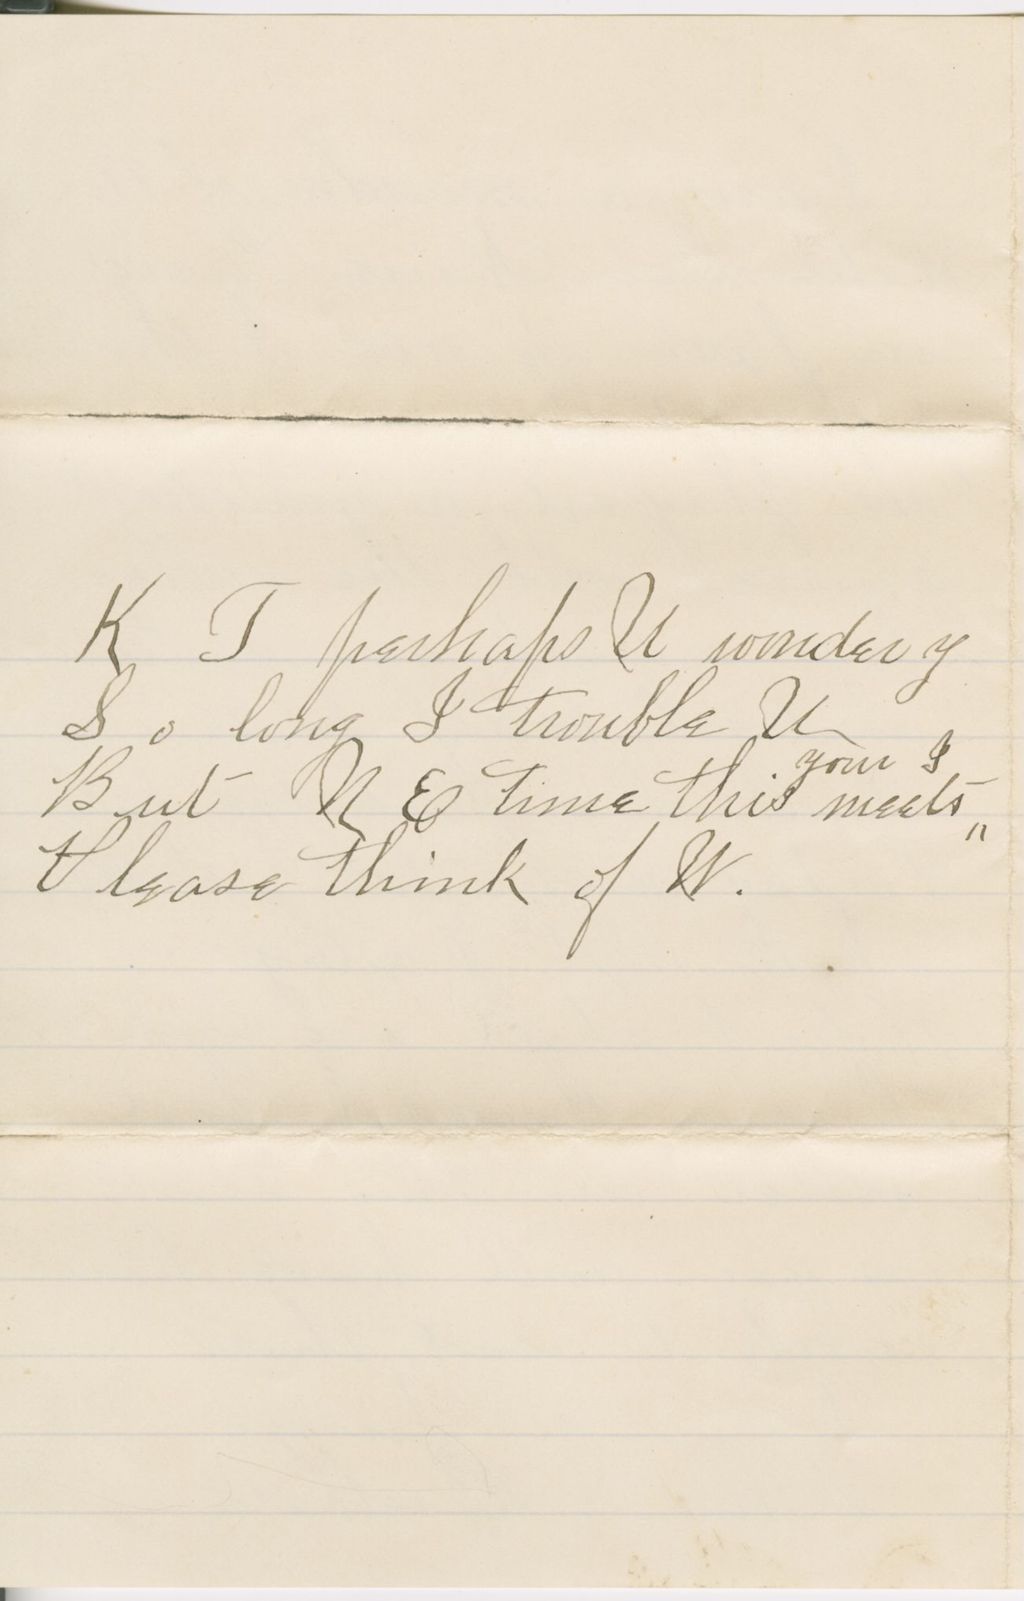 K T perhaps U wonder y
So long I trouble U
But N E time this your I meets "
Please think of W.